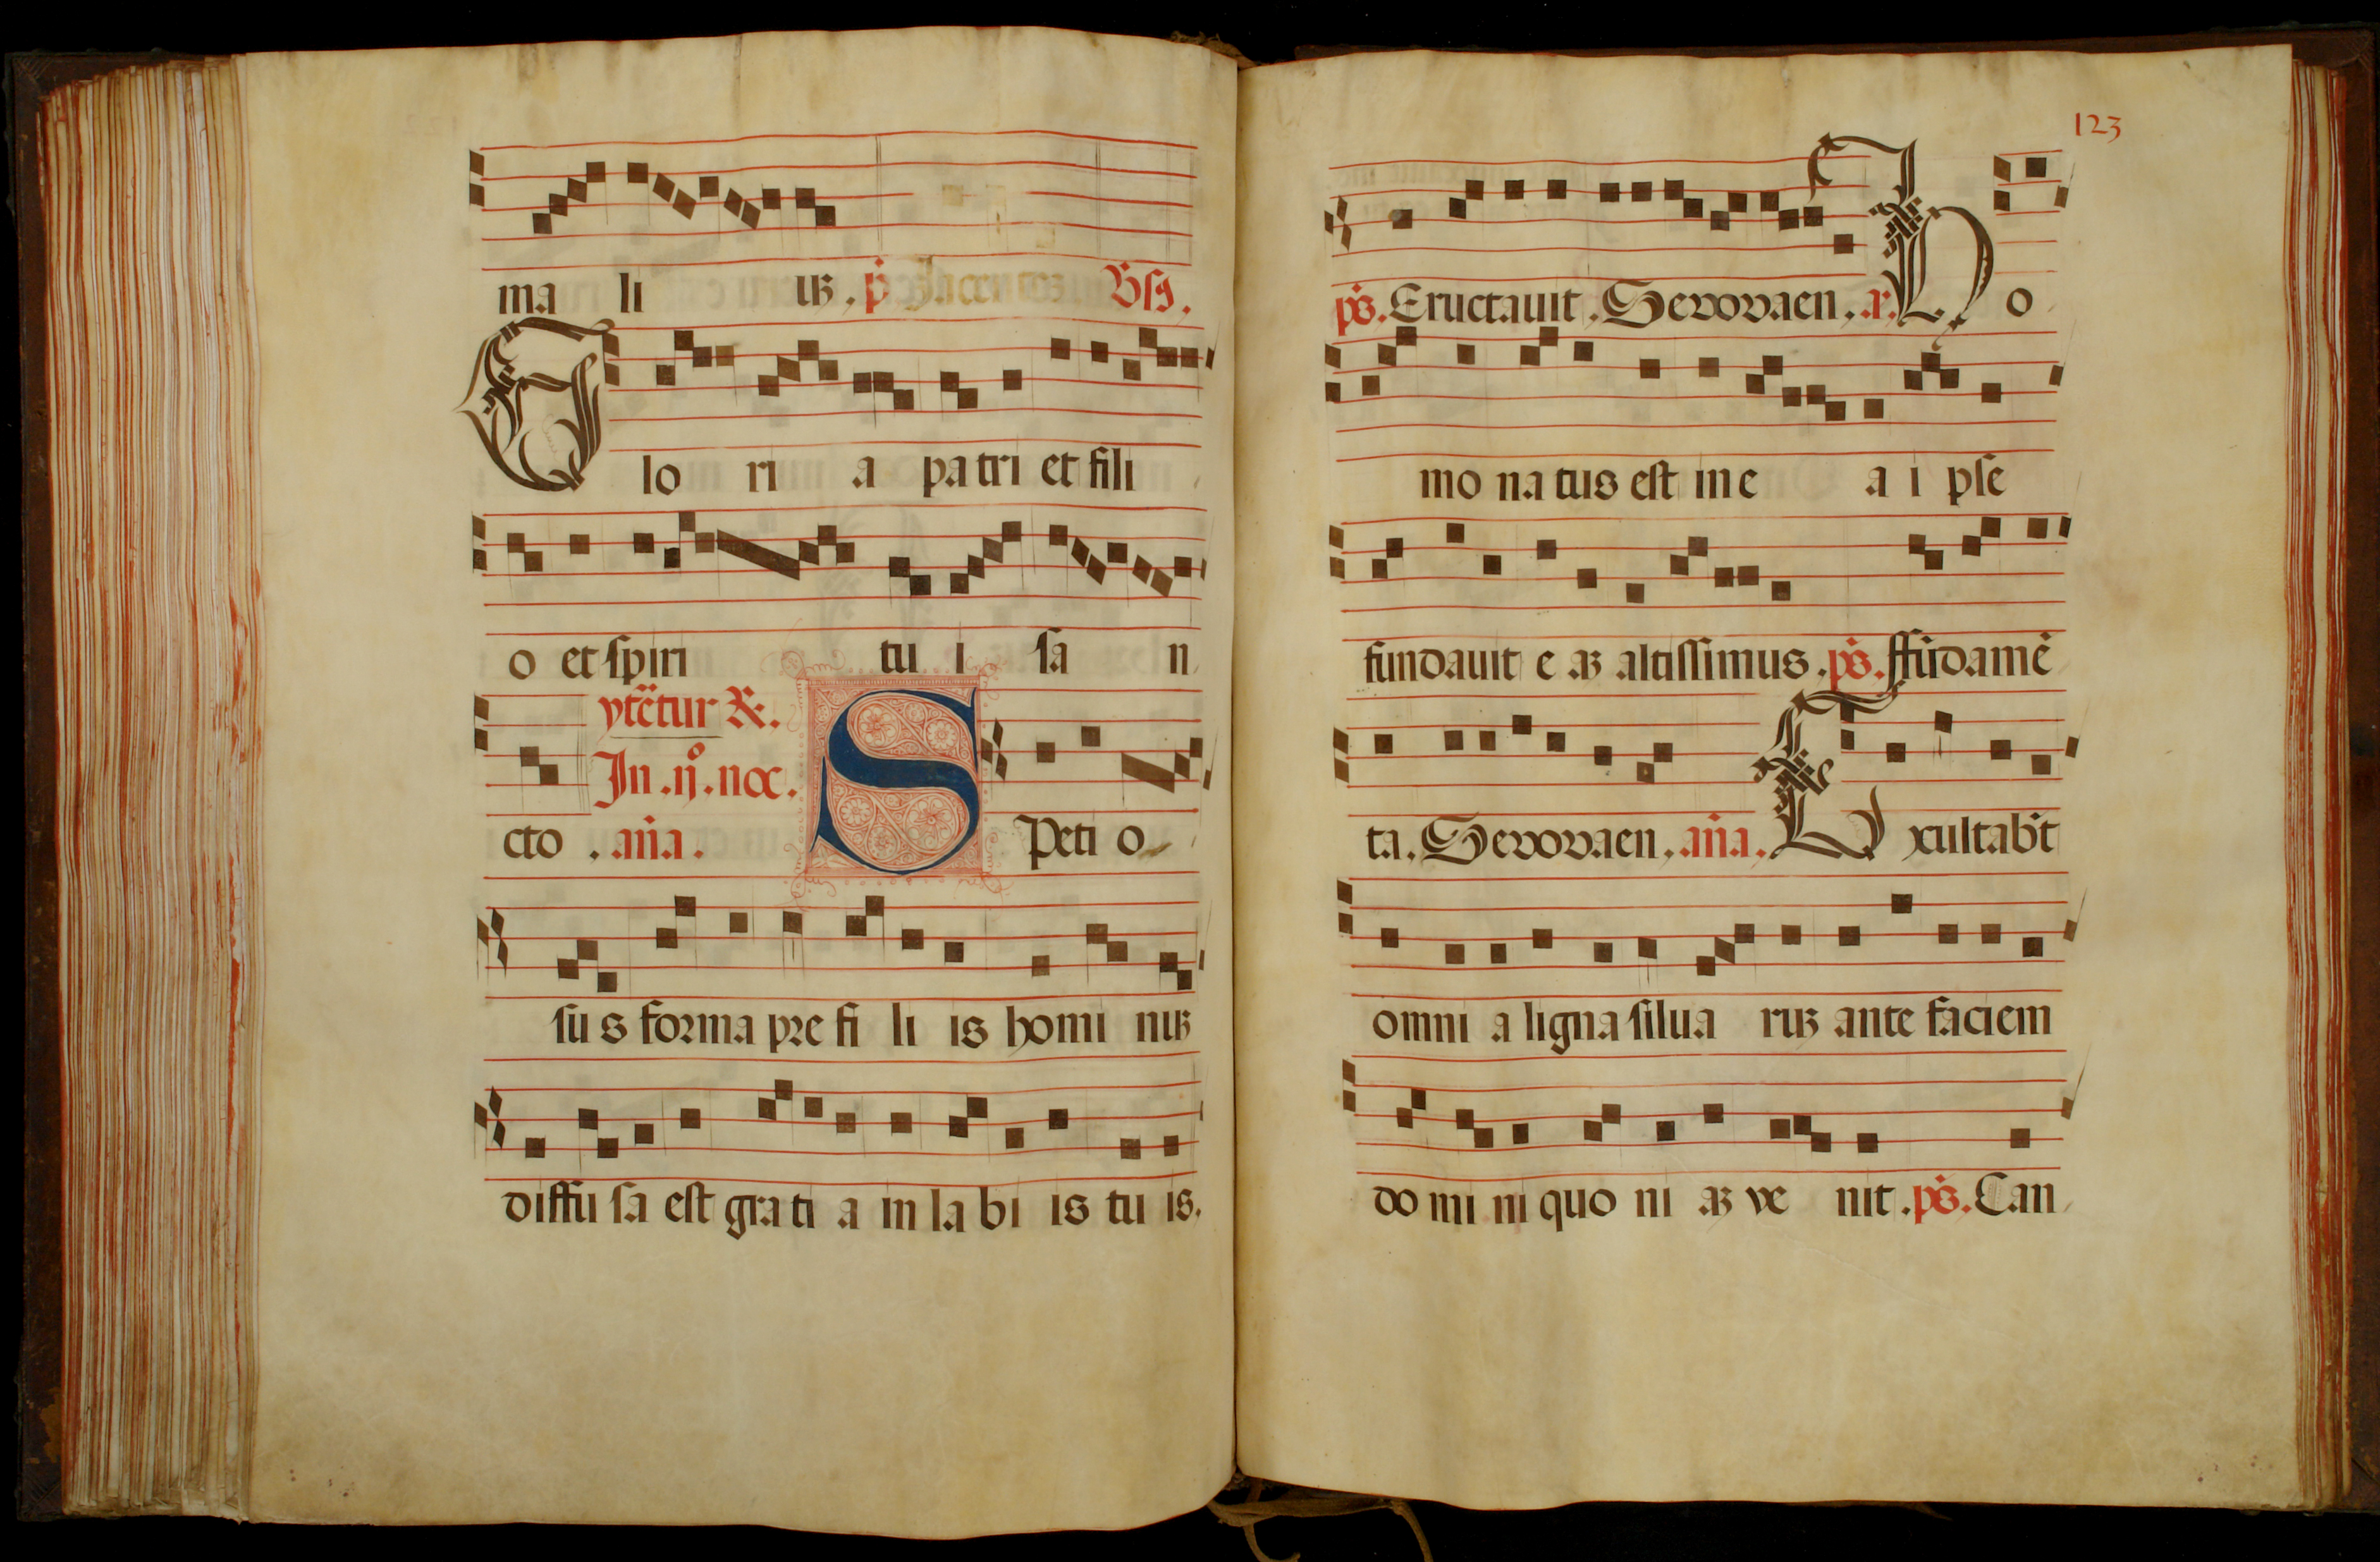 ma li uꝫ. p̄ Jacentem Vsꝯ.
Glo ri a patri et fili
o et spiri tu i sa n
ytẽtur ℟.
In .ij.º noc.
cto . aña. SPeti o
su s forma pre fi li is homi nuꝫ
diffu sa est grati a in la bi is tu is.
123
pš. Eructauit. Seuouaen. a. Ho
mo na tus est in e a i pse
fundauit e aꝫ altissimus. pš. ffũdamẽ
ta. Seuouaen. aña. Exultab̃t
omni a ligna silua ruꝫ ante faciem
do mi ni quo ni aꝫ ve nit. pš. Can